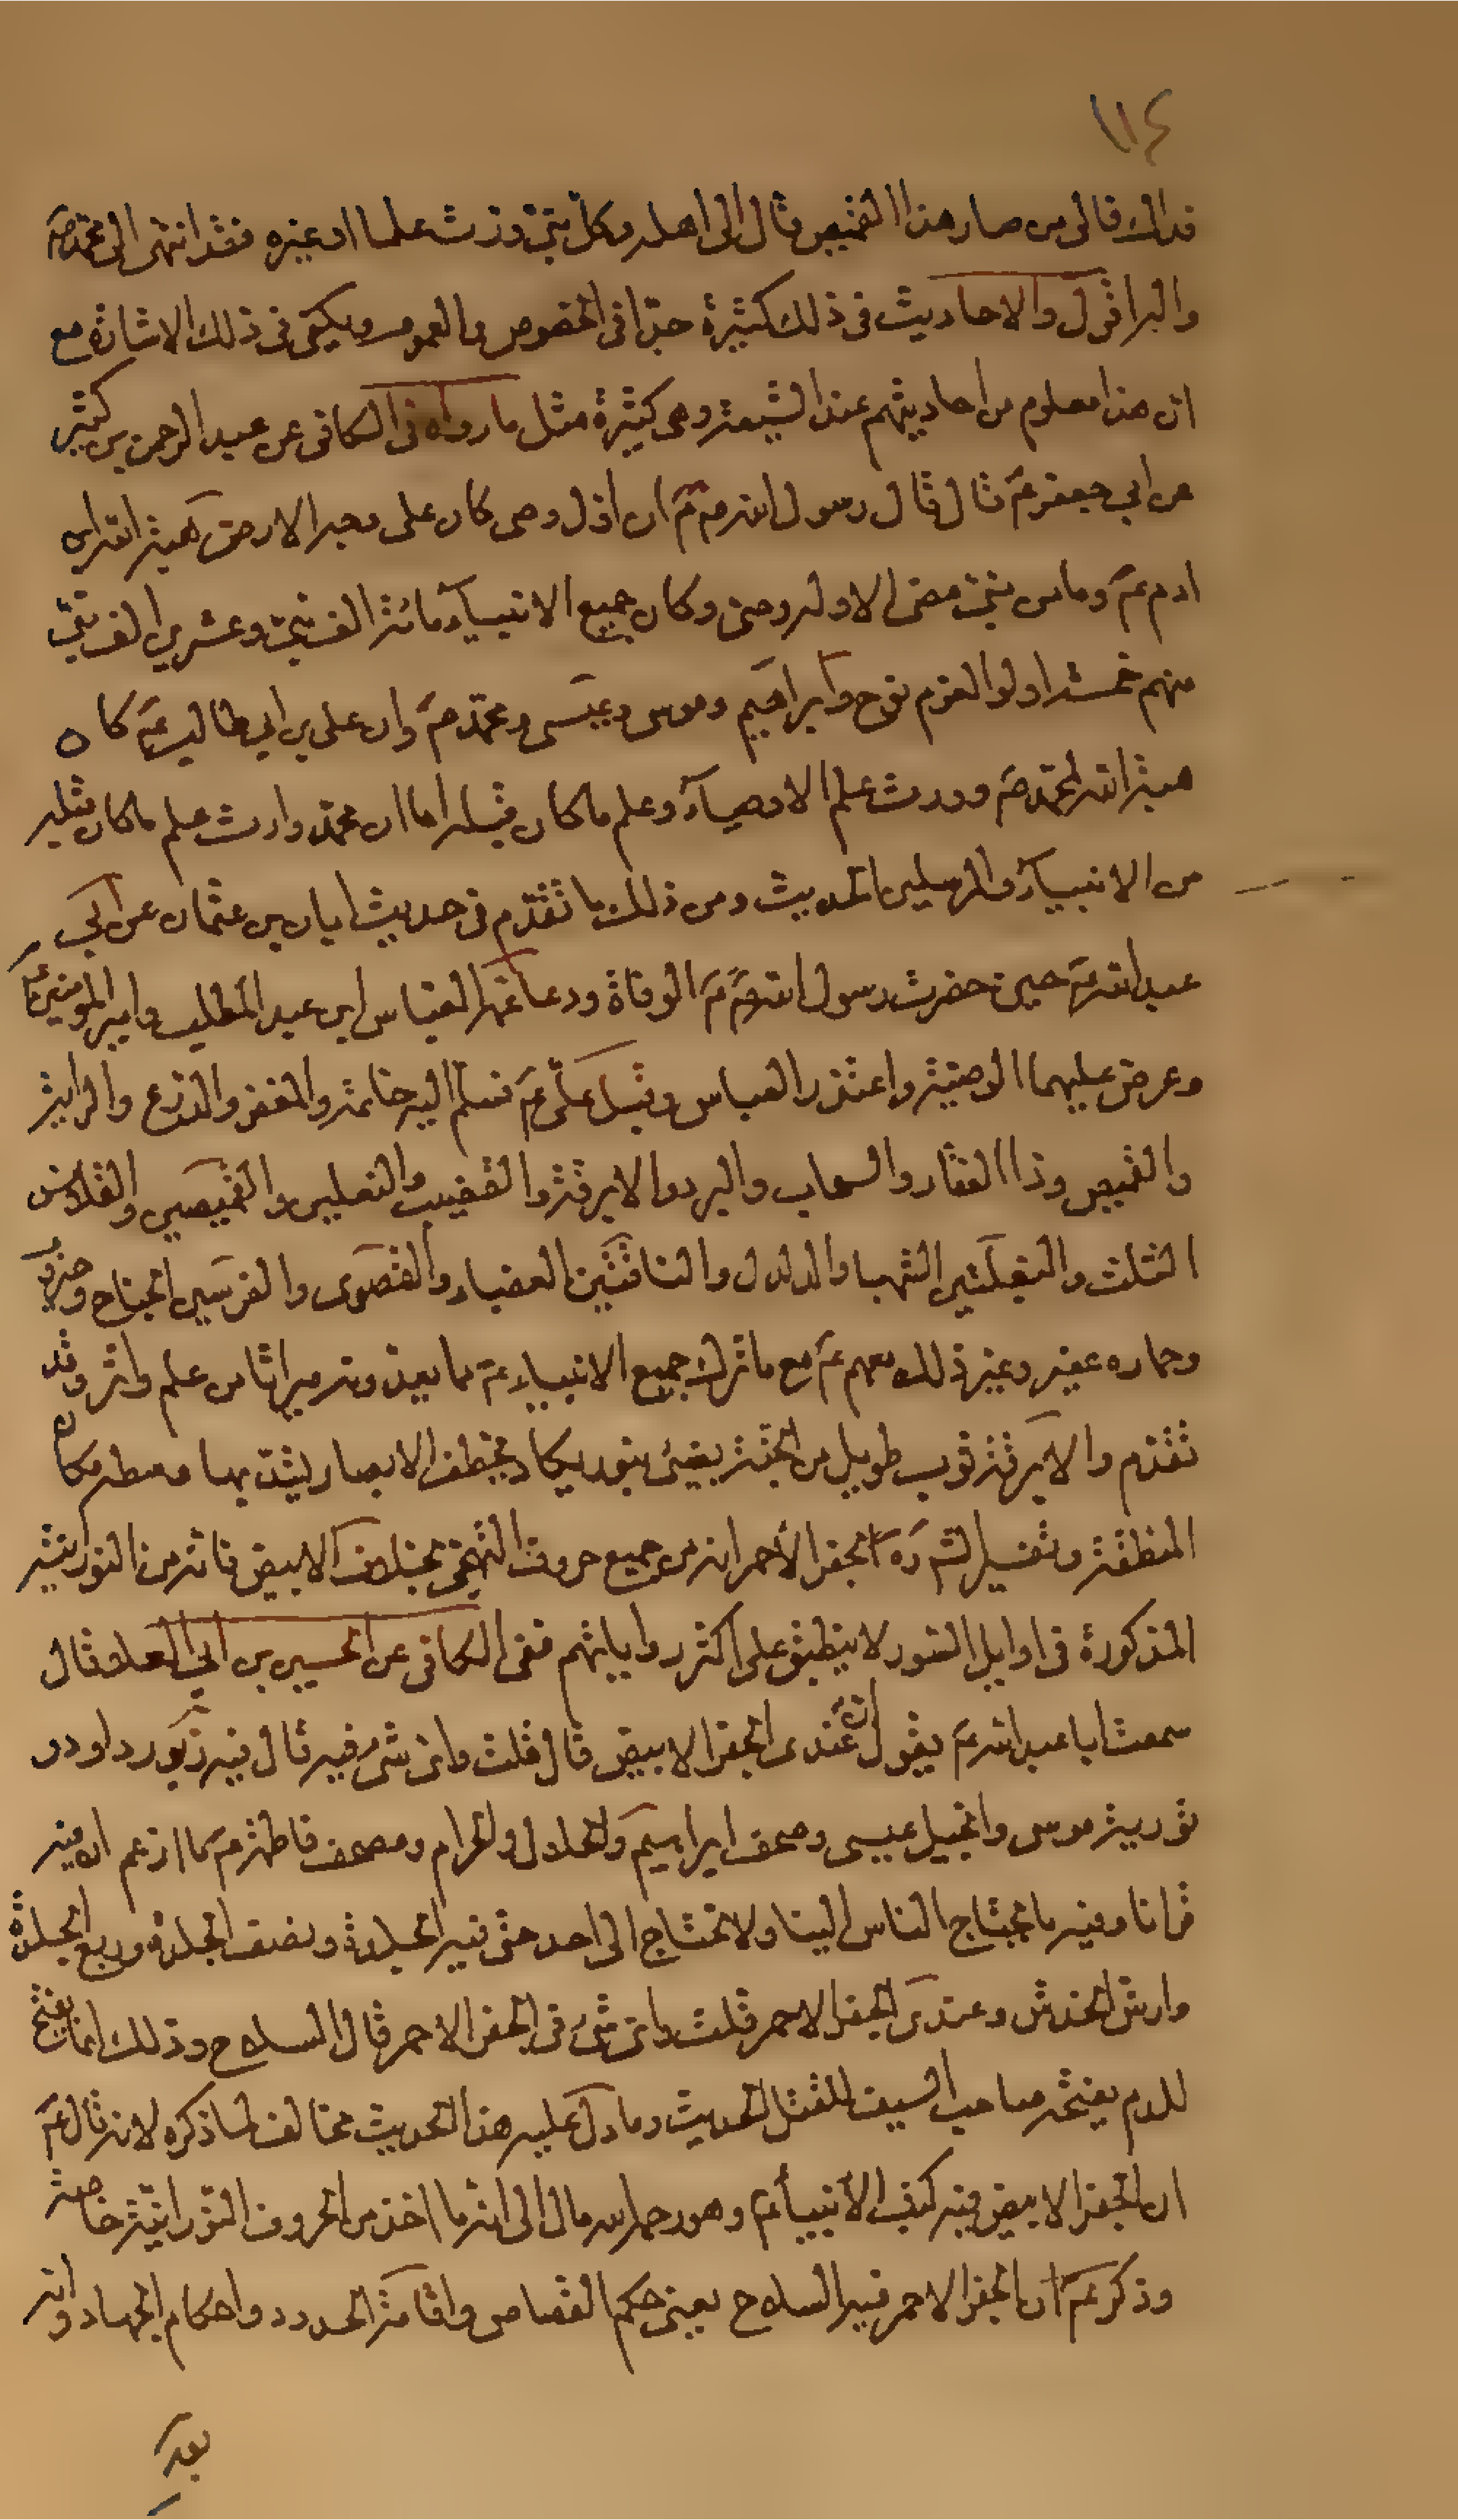 ١١٤
فداك فالى من صار هذا القميص قال الى اهله وكل نبي ورث علما او غيره فقد انتهى الى محمد ص
واله اقول والاحاديث في ذلك كثيرة جدا في الخصوص والعموم ويكفي في ذلك الاشارة مع
ان هذا معلوم من احاديثهم عند الشيعة وهي كثيرة مثل ما رواه في الكافي عن عبد الرحمن بن كثير
عن ابي جعفر ع قال قال رسول الله ص ان اول وصي كان على وجه الارض هبة الله ابن
ادم ع وما من نبي مضى الا وله وصي وكان جميع الانبيآء مائة الف نبي وعشرين الف نبي
منهم خمسة اولوا العزم نوح وابراهيم وموسى وعيسى ومحمد ص وان علي بن ابي طالب ع كان
هبة الله لمحمد ص وورث علم الاوصيآء وعلم ما كان قبله اما ان محمد وارث علم ما كان قبله
من الانبيآء والمرسلين الحديث ومن ذلك ما تقدم في حديث ابان بن عثمان عن ابي
عبد الله ع حين حضرت رسول الله ص الوفاة ودعا العباس ابن عبد المطلب وامير المومنين ع
وعرض عليهما الوصية واعتذر العباس وقبل علي ع فسلم اليه خاتمه والمغفر والدرع والراية
والقميص وذا الفقار والسحاب والبرد والابرقة والقضيب والنعلين والقميصين والقلانس
الثلث والبغلتين الشهبا والدلدل والناقتين العضباء والقصوى والفرسين الجناح وحيزوم
وحماره عفير وغير ذلك معهم ع مع ما ترك جميع الانبياء ع مما يعد ونه ميراثا من علم واثر وقد
تقدم والابرقة ثوب طويل من الجنة يضيئ بنور يكاد يخطف الابصار ليشد بها وسطه مكان
المنطقة وتفسيره الجفر الأحمر انه من جميع حروف التهجي بخلاف الابيض فانه من النورانية
المذكورة في اوايل السور لا ينطبق على اكثر رواياتهم ففي الكافي عن الحسين بن ابي العلا قال
سمعت ابا عبد الله ع يقول ان عندى الجفر الابيض قال قلت واي شئ فيه قال فيه زبور داود و
تورية موسى وانجيل عيسى وصحف ابراهيم ع والحلال والحرام ومصحف فاطمة ع ما ازعم ان فيه
قرانا وفيه ما يحتاج الناس الينا ولا نحتاج الى احد حتى فيه الجلدة ونصف الجلدة وربع الجلدة
وارش الخدش وعندى الجفر الاحمر قلت واي شئ في الجفر الاحمر قال السلاح وذلك انما يفتح
للدم يفتحه صاحب السيف للقتل الحديث وما دل عليه هذا الحديث مخالف لما ذكره لانه قال ع
ان الجفر الابيض فيه كتب الانبيآء ع وهو رحمه الله مال الى انه ما اخذ من الحروف النورانية خاصة
وذكر ع ان الجفر الاحمر فيه السلاح يعنى حكم القصاص واقامة الحدود واحكام الجهاد وانه
بعد